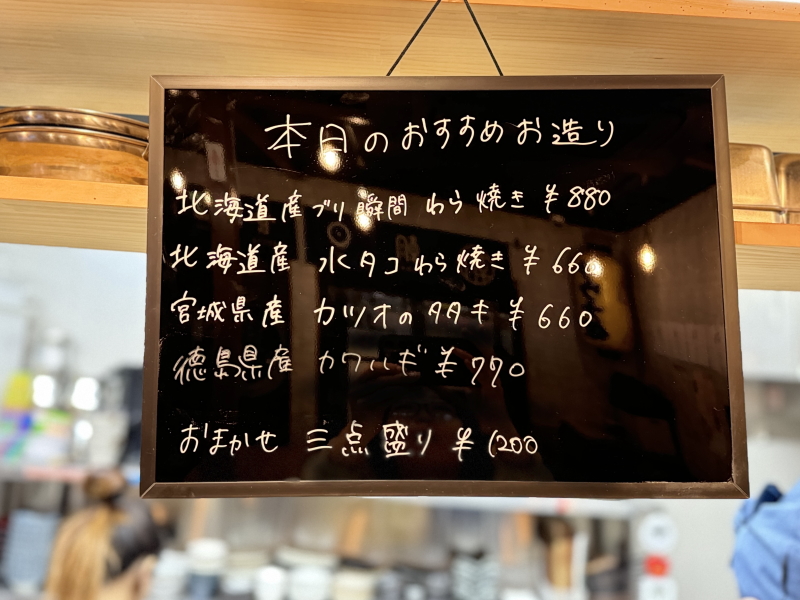 本日のおすすめお造り
北海道産 ブリ 瞬間 わら焼き ¥880
北海道産 水タコ わら焼き ¥660
宮城県産 カツオのタタキ ¥660
徳島県産 カワハギ ¥770
おまかせ 三点盛り ¥1200